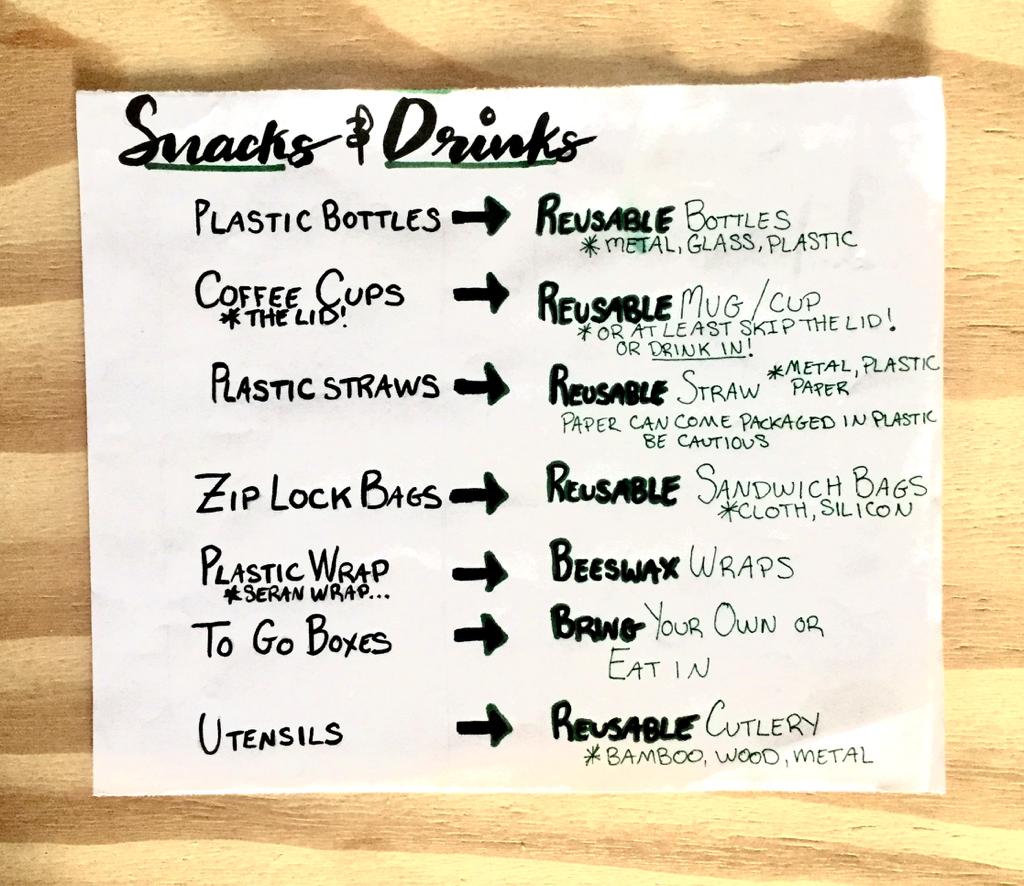 Snacks & Drinks
PLASTIC BOTTLES → REUSABLE BOTTLES
*METAL, GLASS, PLASTIC
COFFEE CUPS → REUSABLE MUG/CUP
*THE LID!
*OR AT LEAST SKIP THE LID!
OR DRINK IN!
PLASTIC STRAWS → REUSABLE STRAW *METAL, PLASTIC
PAPER
PAPER CAN COME PACKAGED IN PLASTIC
BE CAUTIOUS
ZIP LOCK BAGS → REUSABLE SANDWICH BAGS
*CLOTH, SILICON
PLASTIC WRAP → BEESWAX WRAPS
*SERAN WRAP...
TO GO BOXES → BRING YOUR OWN OR
EAT IN
UTENSILS → REUSABLE CUTLERY
*BAMBOO, WOOD, METAL